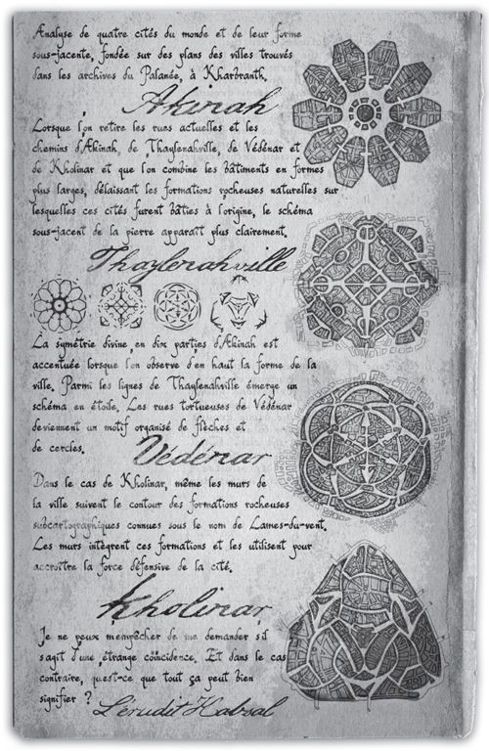 Analyse de quatre cités du monde et de leur forme
sous-jacente, fondée sur des plans des villes trouvés
dans les archives du Palanée, à Kharbranth.
Akinah
Lorsque l'on retire les rues actuelles et les
chemins d'Akinah, de Thaylenahville, de Védénar et
de Kholinar et que l'on combine les bâtiments en formes
plus larges, délaissant les formations rocheuses naturelles sur
lesquelles ces cités furent bâties à l'origine, le schéma
sous-jacent de la pierre apparaît plus clairement.
Thaylenahville
La symétrie divine en dix parties d'Akinah est
accentuée lorsque l'on observe d'en haut la forme de la
ville. Parmi les lignes de Thaylenahville émerge un
schéma en étoile. Les rues tortueuses de Védénar
deviennent un motif organisé de flèches et
de cercles.
Védénar
Dans le cas de Kholinar, même les murs de
la ville suivent le contour des formations rocheuses
subcartographiques connues sous le nom de Lames-du-vent.
Les murs intègrent ces formations et les utilisent pour
accroître la force défensive de la cité.
Kholinar
Je ne peux m'empêcher de me demander s'il
s'agit d'une étrange coïncidence. Et dans le cas
contraire, qu'est-ce que tout ça peut bien
signifier ?
L'érudit Kabsal